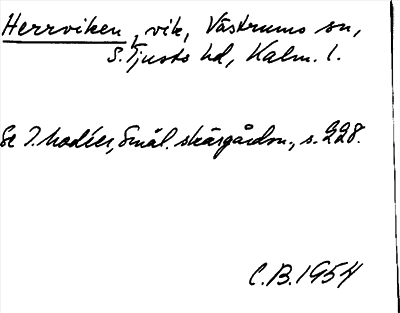 Herrviken, vik, Västrums sn,
S. Tjusts hd, Kalm. l.
Se I. Modéer, Smål. skärgården, s. 228.
C.B. 1954